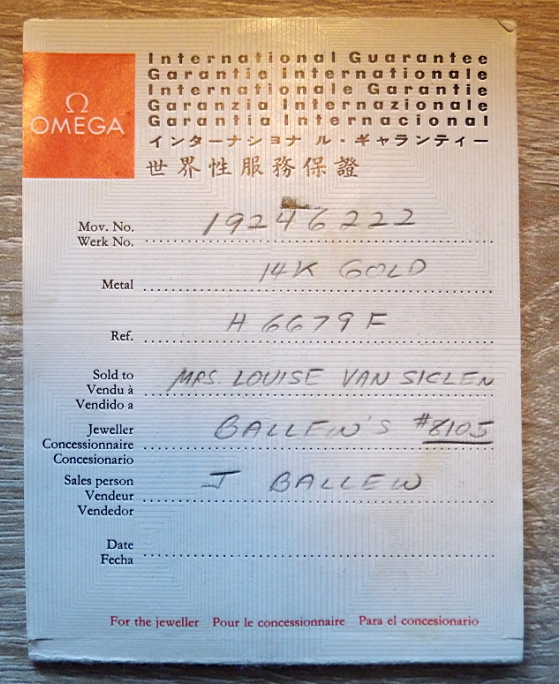 Ω
OMEGA
International Guarantee
Garantie internationale
Internationale Garantie
Garanzia Internazionale
Garantía Internacional
インターナショナル・ギャランティー
世界性服務保證
Mov. No. 19246222
Werk No.
14K GOLD
Metal
H 6679 F
Ref.
Sold to MRS. LOUISE VAN SICLEN
Vendu à
Vendido a
Jeweller BALLEW'S #8105
Concessionnaire
Concesionario
Sales person J BALLEW
Vendeur
Vendedor
Date
Fecha
For the jeweller Pour le concessionnaire Para el concesionario